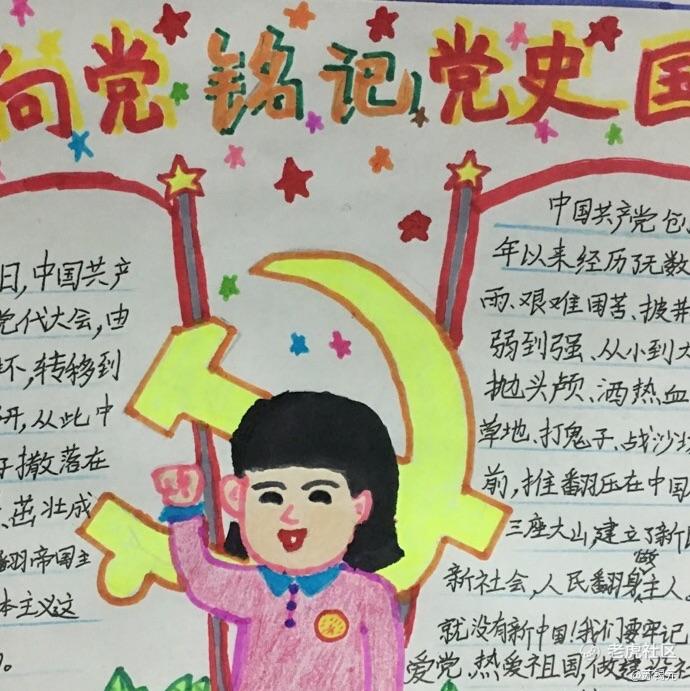 向党 铭记党史国
日,中国共产
党代大会,由
坏,转移到
开,从此中
子撒落在
、茁壮成
翻帝国主
本主义这
中国共产党创
年以来经历了无数
雨、艰难困苦、披荆
弱到强、从小到大
抛头颅、洒热血
草地、打鬼子、战沙场
前,推翻压在中国
三座大山,建立了新
新社会,人民翻身做主人。
就没有新中国!我们要牢记
爱党,热爱祖国,做建设
老虎社区